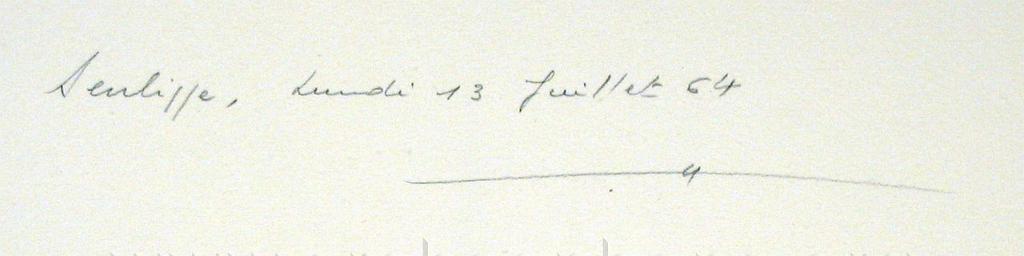 Senlisse, Lundi 13 Juillet 64
4